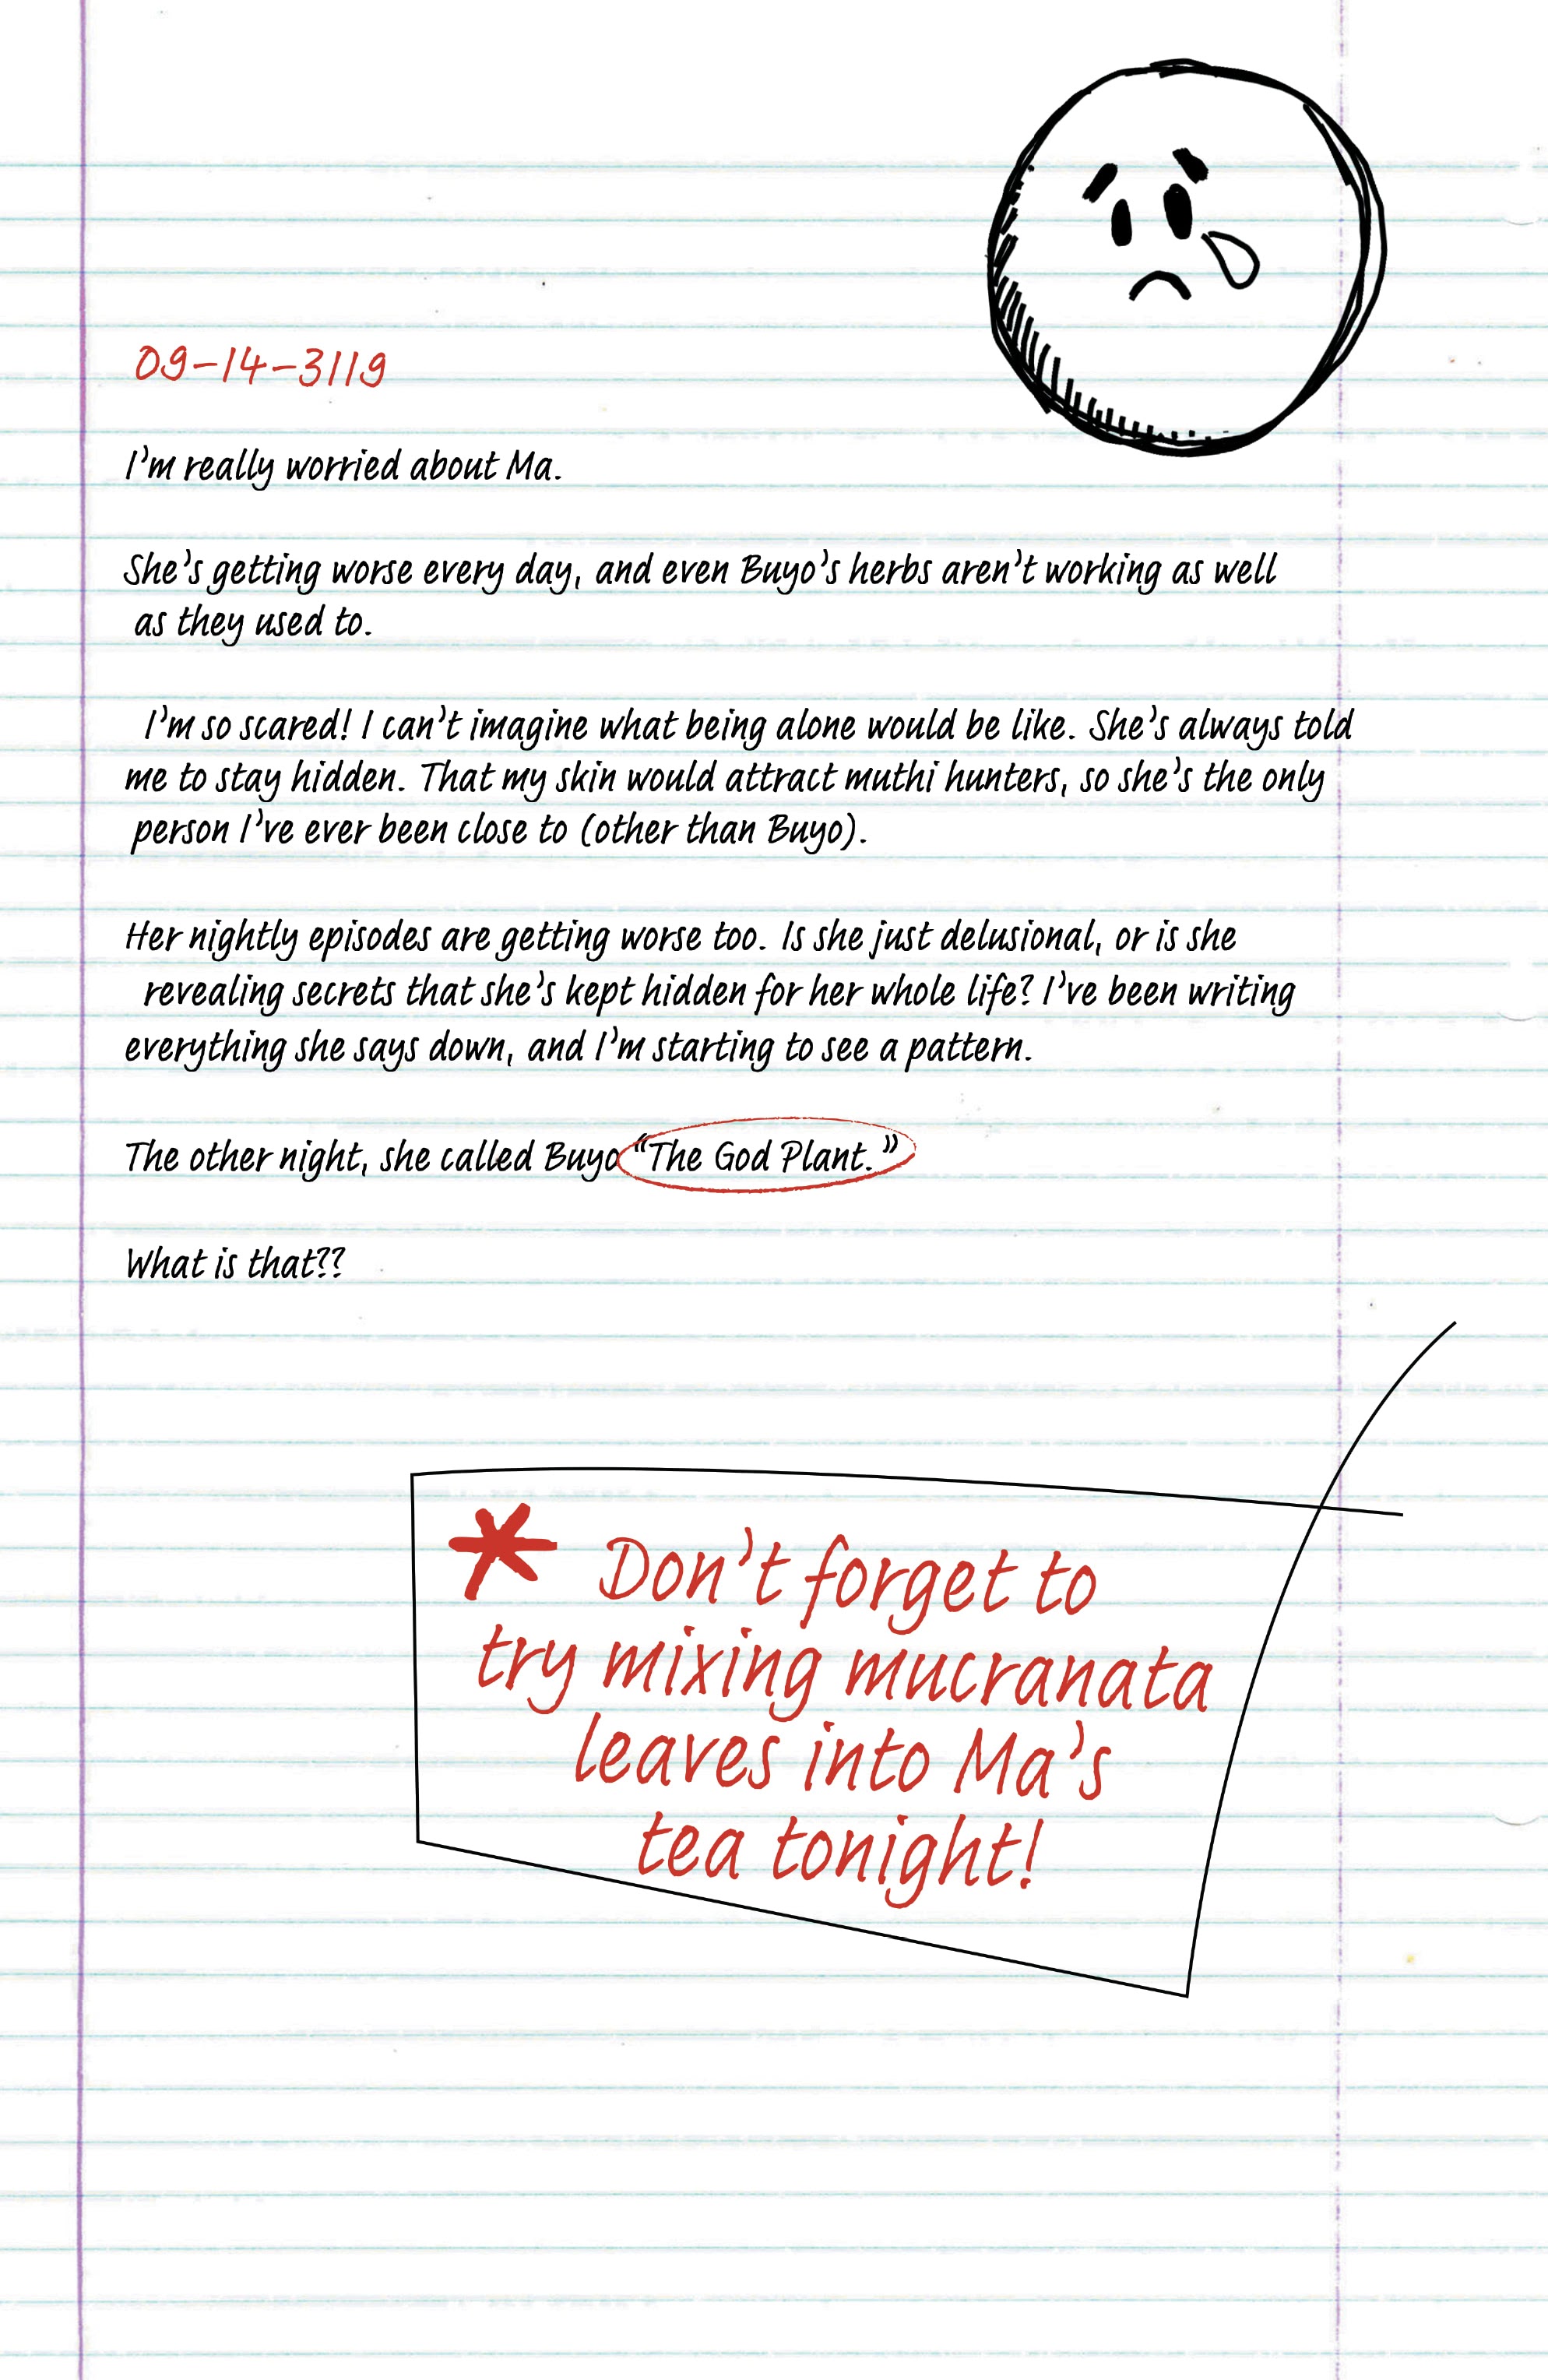 09-14-3119
I'm really worried about Ma.
She's getting worse every day, and even Buyo's herbs aren't working as well
as they used to.
I'm so scared! I can't imagine what being alone would be like. She's always told
me to stay hidden. That my skin would attract muthi hunters, so she's the only
person I've ever been close to (other than Buyo).
Her nightly episodes are getting worse too. Is she just delusional, or is she
revealing secrets that she's kept hidden for her whole life? I've been writing
everything she says down, and I'm starting to see a pattern.
The other night, she called Buyo "The God Plant."
What is that??
* Don't forget to
try mixing mucranata
leaves into Ma's
tea tonight!